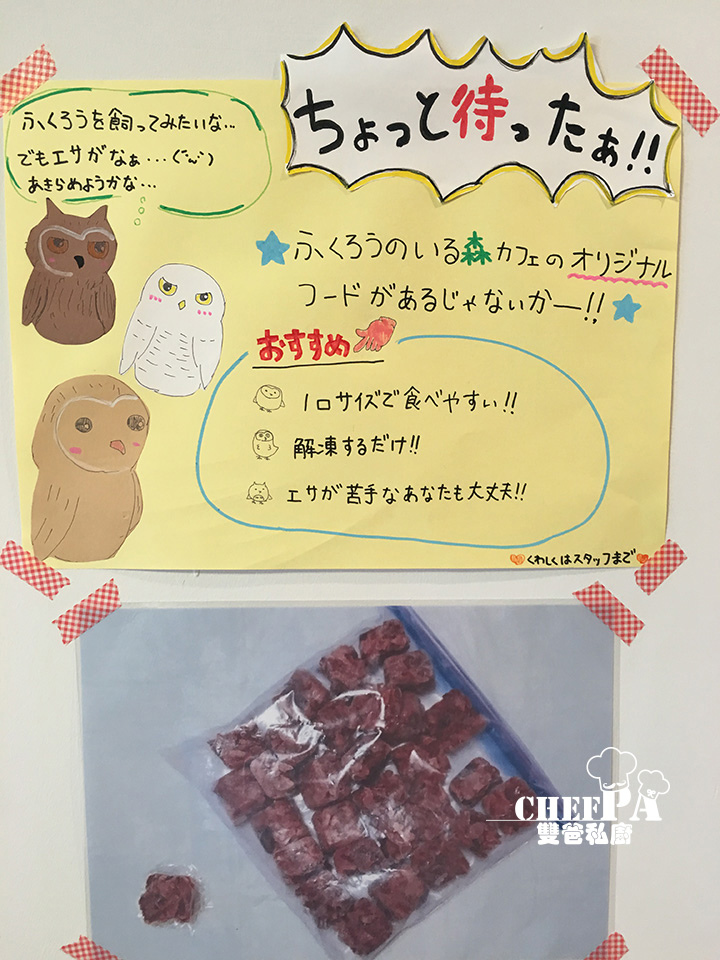 ちょっと待ったぁ!!
ふくろうを飼ってみたいな…
でもエサがなぁ…
あきらめようかな…
ふくろうのいる森カフェのオリジナル
フードがあるじゃないかー!!
おすすめ
1口サイズで食べやすい!!
解凍するだけ!!
エサが苦手なあなたも大丈夫!!
くわしくはスタッフまで
CHEFPA
雙爸私廚